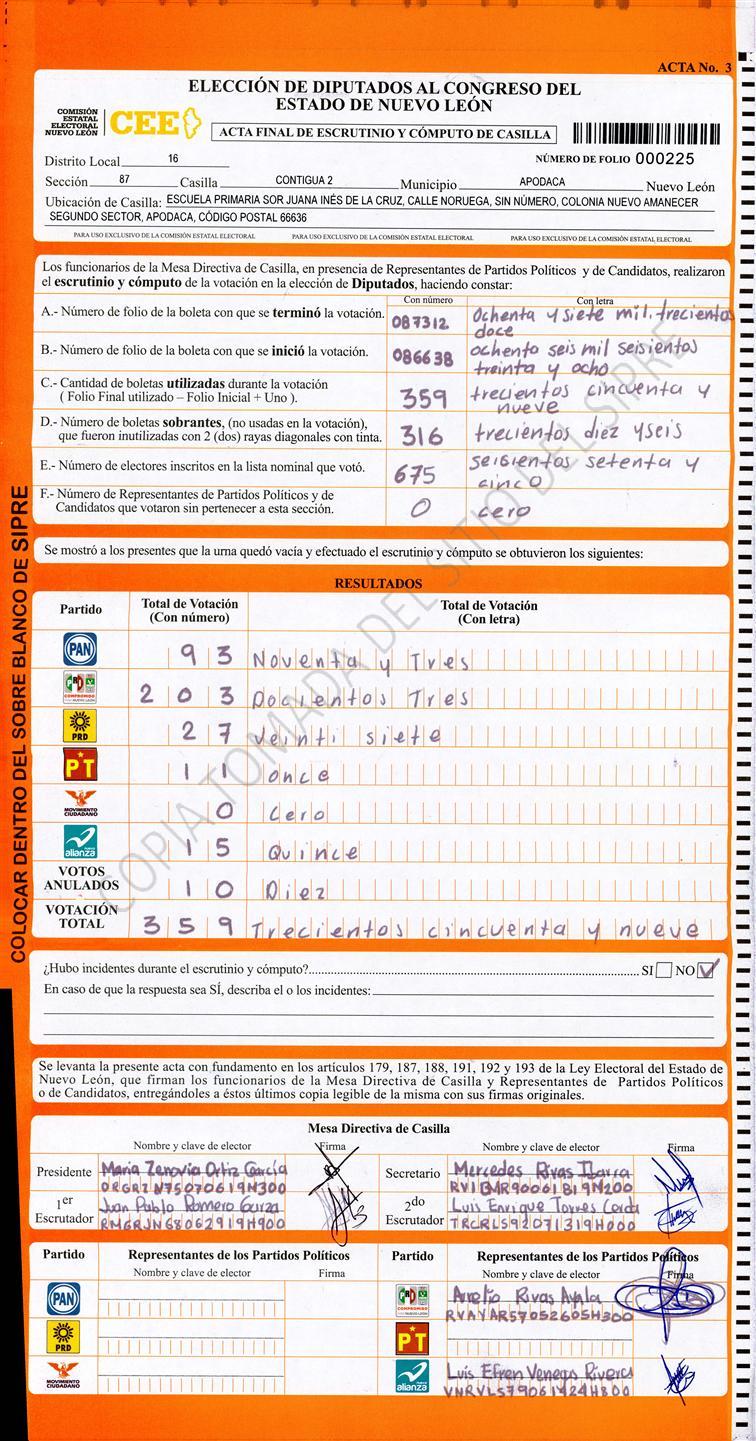 ACTA No. 3
ELECCIÓN DE DIPUTADOS AL CONGRESO DEL
ESTADO DE NUEVO LEÓN
COMISIÓN
ESTATAL
ELECTORAL
NUEVO LEÓN
CEE
ACTA FINAL DE ESCRUTINIO Y CÓMPUTO DE CASILLA
Distrito Local 16 NÚMERO DE FOLIO 000225
Sección 87 Casilla CONTIGUA 2 Municipio APODACA Nuevo León
Ubicación de Casilla: ESCUELA PRIMARIA SOR JUANA INÉS DE LA CRUZ, CALLE NORUEGA, SIN NÚMERO, COLONIA NUEVO AMANECER
SEGUNDO SECTOR, APODACA, CÓDIGO POSTAL 66636
PARA USO EXCLUSIVO DE LA COMISIÓN ESTATAL ELECTORAL PARA USO EXCLUSIVO DE LA COMISIÓN ESTATAL ELECTORAL PARA USO EXCLUSIVO DE LA COMISIÓN ESTATAL ELECTORAL
Los funcionarios de la Mesa Directiva de Casilla, en presencia de Representantes de Partidos Políticos y de Candidatos, realizaron
el escrutinio y cómputo de la votación en la elección de Diputados, haciendo constar:
Con número Con letra
A.- Número de folio de la boleta con que se terminó la votación. 087312 Ochenta y siete mil trecientos
doce
B.- Número de folio de la boleta con que se inició la votación. 086638 ochento seis mil seisientos
treinta y ocho
C.- Cantidad de boletas utilizadas durante la votación
( Folio Final utilizado – Folio Inicial + Uno ). 359 trecientos cincuenta y
nueve
D.- Número de boletas sobrantes, (no usadas en la votación),
que fueron inutilizadas con 2 (dos) rayas diagonales con tinta. 316 trecientos diez y seis
E.- Número de electores inscritos en la lista nominal que votó. 675 seisientos setenta y
cinco
F.- Número de Representantes de Partidos Políticos y de
Candidatos que votaron sin pertenecer a esta sección. 0 cero
Se mostró a los presentes que la urna quedó vacía y efectuado el escrutinio y cómputo se obtuvieron los siguientes:
RESULTADOS
Partido Total de Votación
(Con número) Total de Votación
(Con letra)
PAN 93 Noventa y Tres
PRD COMPROMISO 203 Docientos Tres
PRD 27 veinti siete
PT 11 once
MOVIMIENTO CIUDADANO 0 Cero
alianza 15 Quince
VOTOS
ANULADOS 10 Diez
VOTACIÓN
TOTAL 359 Trecientos cincuenta y nueve
COLOCAR DENTRO DEL SOBRE BLANCO DE SIPRE
COPIA TOMADA DEL SITIO DEL SIPRE
¿Hubo incidentes durante el escrutinio y cómputo? SI NO
En caso de que la respuesta sea SÍ, describa el o los incidentes:
Se levanta la presente acta con fundamento en los artículos 179, 187, 188, 191, 192 y 193 de la Ley Electoral del Estado de
Nuevo León, que firman los funcionarios de la Mesa Directiva de Casilla y Representantes de Partidos Políticos
o de Candidatos, entregándoles a éstos últimos copia legible de la misma con sus firmas originales.
Mesa Directiva de Casilla
Nombre y clave de elector Firma Nombre y clave de elector Firma
Presidente Maria Zenovia Ortiz García
ORGRZN75070619N300
Secretario Mercedes Rivas Ibarra
1er
Escrutador Juan Pablo Romero Garza
RMGRJN68062919H900
2do
Escrutador Luis Enrique Torres Cerda
TRCRLS92071319H000
Partido Representantes de los Partidos Políticos Partido Representantes de los Partidos Políticos
Nombre y clave de elector Firma Nombre y clave de elector Firma
PAN
COMPROMISO Aurelio Rivas Ayala
RVAYAR57052605H300
PRD
PT
MOVIMIENTO
CIUDADANO
alianza Luis Efren Venega Rivera
VNRVLS79061424H800